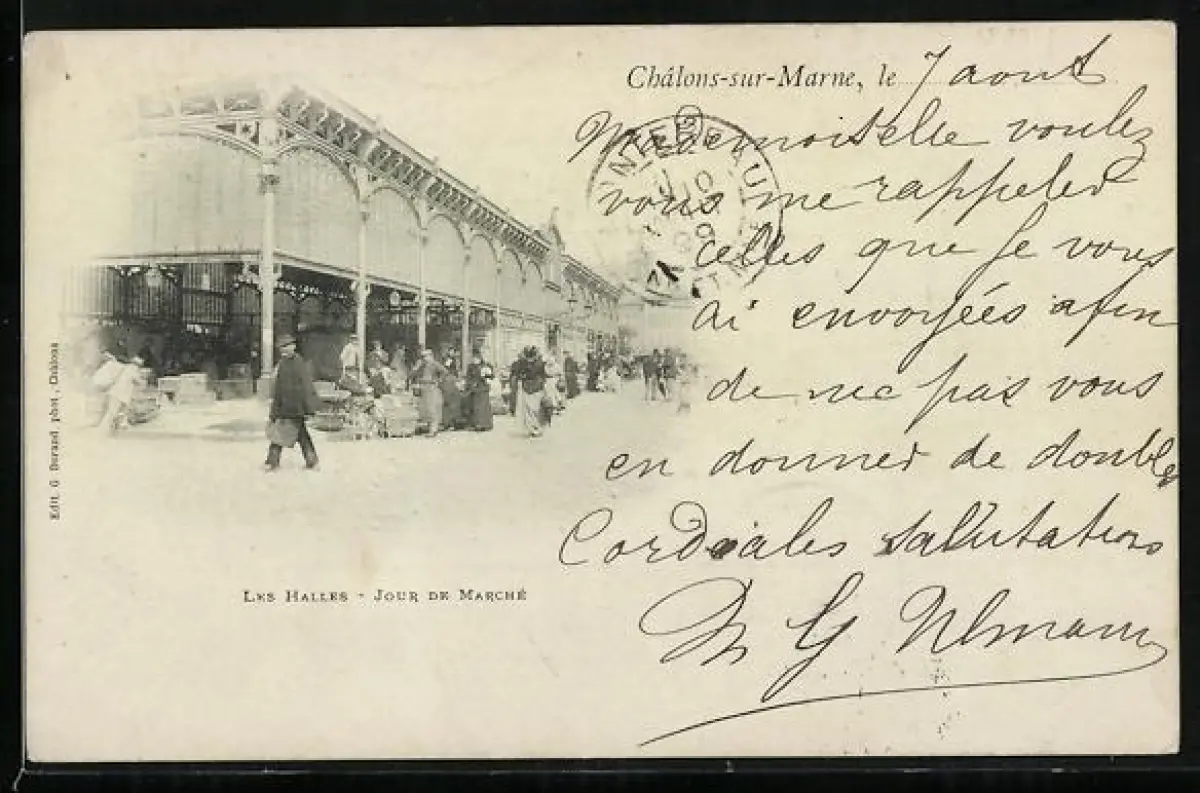 Châlons-sur-Marne, le 7 aout
Mademoiselle voulez
vous me rappeler
celles que je vous
ai envoyées afin
de ne pas vous
en donner de double
Cordiales salutations
Edit. G. Durand, phot., Châlons
LES HALLES - JOUR DE MARCHÉ